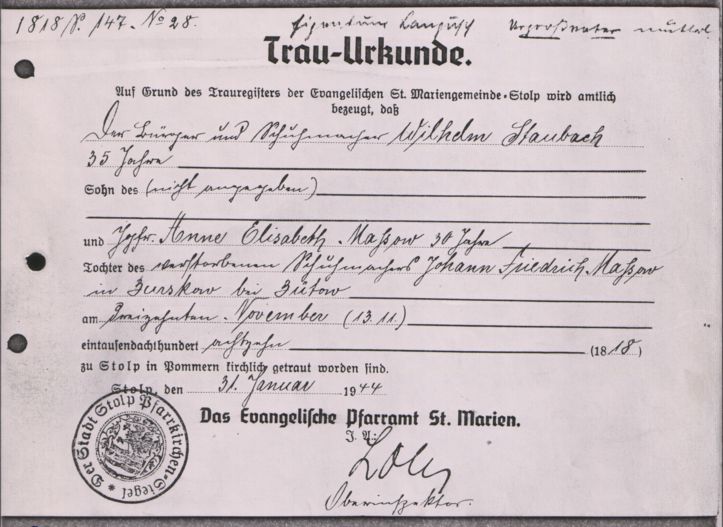 1818 S. 147. No 28. Eigentum Langusch Urgroßvater mütterl.
Trau-Urkunde.
Auf Grund des Trauregisters der Evangelischen St. Mariengemeinde-Stolp wird amtlich
bezeugt, daß
Der Bürger und Schuhmacher Wilhelm Staubach
35 Jahre
Sohn des (nicht angegeben)
und Jgfr. Anne Elisabeth Maßow 30 Jahre
Tochter des verstorbenen Schuhmachers Johann Friedrich Maßow
in bei Bütow
am Dreizehnten November (13.11.)
eintausendachthundert achtzehn (1818)
zu Stolp in Pommern kirchlich getraut worden sind.
Stolp, den 31. Januar 1944
Das Evangelische Pfarramt St. Marien.
J. A.:
Oberinspektor.
Der Stadt Stolp Pfarrkirchen-Siegel